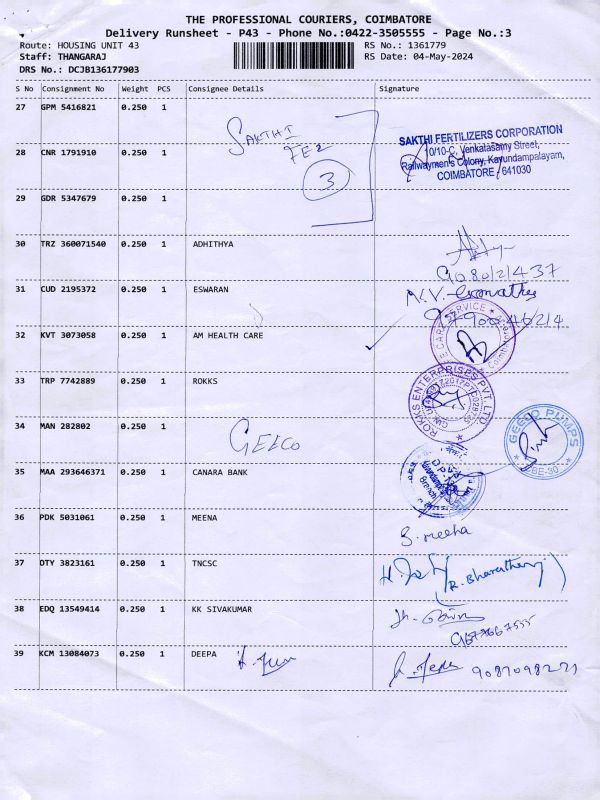 THE PROFESSIONAL COURIERS, COIMBATORE
Delivery Runsheet - P43 - Phone No.:0422-3505555 - Page No.:3
Route: HOUSING UNIT 43 RS No.: 1361779
Staff: THANGARAJ RS Date: 04-May-2024
DRS No.: DCJB136177903
S No Consignment No Weight PCS Consignee Details Signature
27 GPM 5416821 0.250 1
SAKTHI
FEZ
3
SAKTHI FERTILIZERS CORPORATION
10/10-C, Venkatasamy Street,
Railwaymen's Colony, Kavundampalayam,
COIMBATORE - 641030
28 CNR 1791910 0.250 1
29 GDR 5347679 0.250 1
30 TRZ 360071540 0.250 1 ADHITHYA
31 CUD 2195372 0.250 1 ESWARAN
32 KVT 3073058 0.250 1 AM HEALTH CARE
E CARE SERVICE
33 TRP 7742889 0.250 1 ROKKS
ROKKS ENTERPRISES PVT. LTD
34 MAN 282802 0.250 1 GEECO
GEECO PUMPS
35 MAA 293646371 0.250 1 CANARA BANK
Branch
36 PDK 5031061 0.250 1 MEENA
37 OTY 3823161 0.250 1 TNCSC
(R. Bharathi)
38 EDQ 13549414 0.250 1 KK SIVAKUMAR
39 KCM 13084073 0.250 1 DEEPA